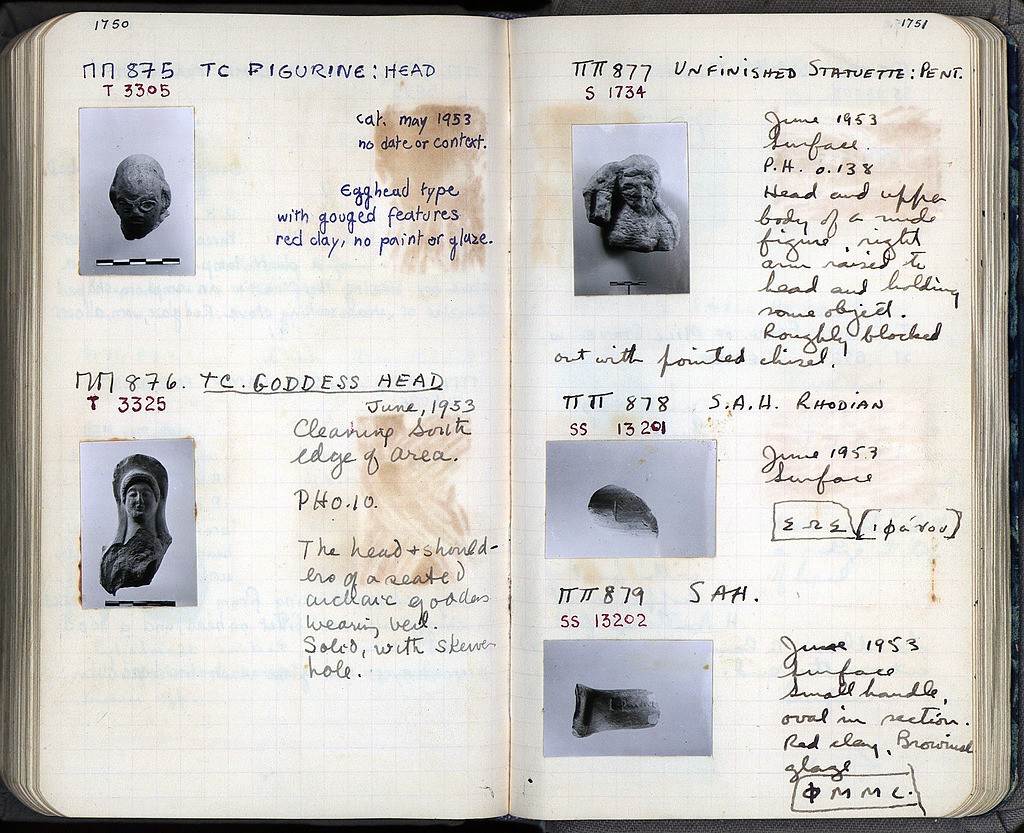 1750
ΠΠ 875 TC FIGURINE: HEAD
T 3305
cat. may 1953
no date or context.
Egghead type
with gouged features
red clay, no paint or glaze.
ΠΠ 876. TC. GODDESS HEAD
T 3325
June, 1953
Cleaning South
edge of area.
PH 0.10.
The head + should-
ers of a seated
archaic goddess
wearing veil.
Solid, with skewer
hole.
1751
ΠΠ 877 UNFINISHED STATUETTE: PENT.
S 1734
June 1953
Surface.
P.H. 0.138
Head and upper
body of a nude
figure, right
arm raised to
head and holding
some object.
Roughly blocked
out with pointed chisel.
ΠΠ 878 S.A.H. RHODIAN
SS 13201
June 1953
Surface
ΣΩΣ [ιφάνου]
ΠΠ 879 SAH.
SS 13202
June 1953
Surface
Small handle,
oval in section.
Red clay, Brownish
glaze
Φ Μ Μ C.